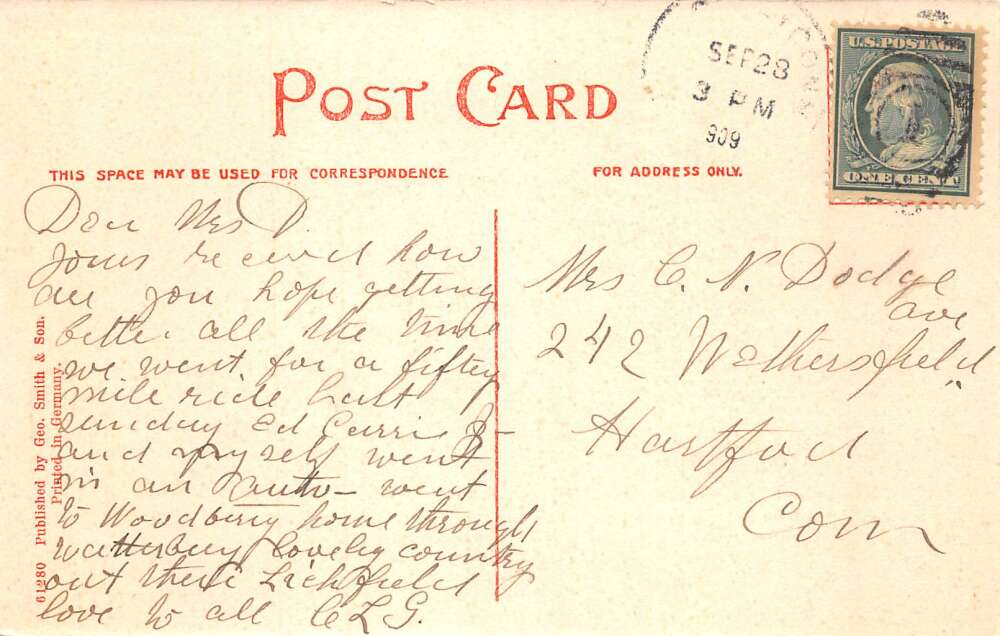 POST CARD
THIS SPACE MAY BE USED FOR CORRESPONDENCE
FOR ADDRESS ONLY.
CONN
SEP 28
3 PM
909
U.S. POSTAGE
ONE CENT
Dear Mrs D.
yours received how
are you hope getting
better all the time
we went for a fifty
mile ride last
sunday Ed Carrie
and myself went
in an auto - went
to Woodbury home through
Watterbury lovely country
out there Lichfield
love to all
Mrs C. N. Dodge
242 Wethersfield ave
Hartford
Conn
61280 Published by Geo. Smith & Son.
Printed in Germany.